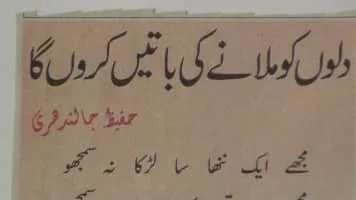 دلوں کو ملانے کی باتیں کروں گا
حفیظ جالندھری
مجھے ایک ننھا سا لڑکا نہ سمجھو